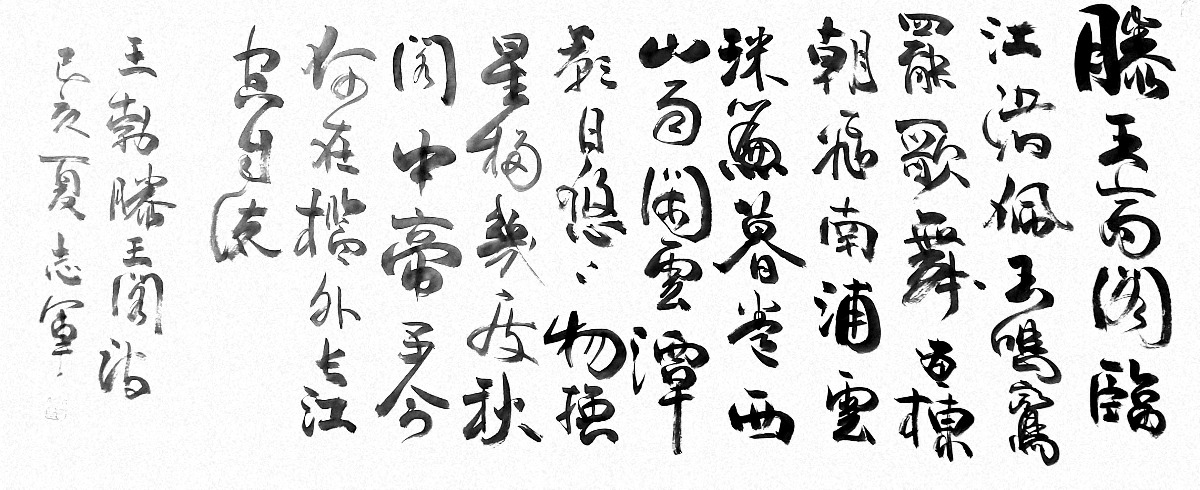 滕王高閣臨
江渚佩玉鳴鸞
罷歌舞畫棟
朝飛南浦雲
珠簾暮卷西
山雨閑雲潭
影日悠〻物換
星移幾度秋
閣中帝子今
何在檻外長江
空自流
王勃滕王閣詩
己亥夏志軍